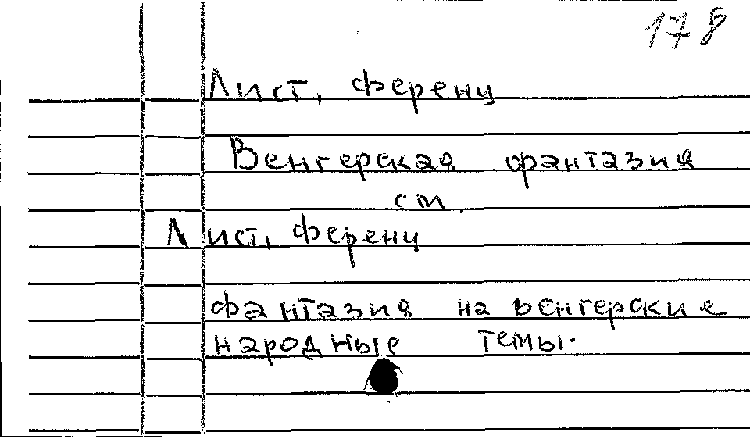 178
Лист, Ференц
Венгерская фантазия
см.
Лист, Ференц
Фантазия на венгерские
народные темы.